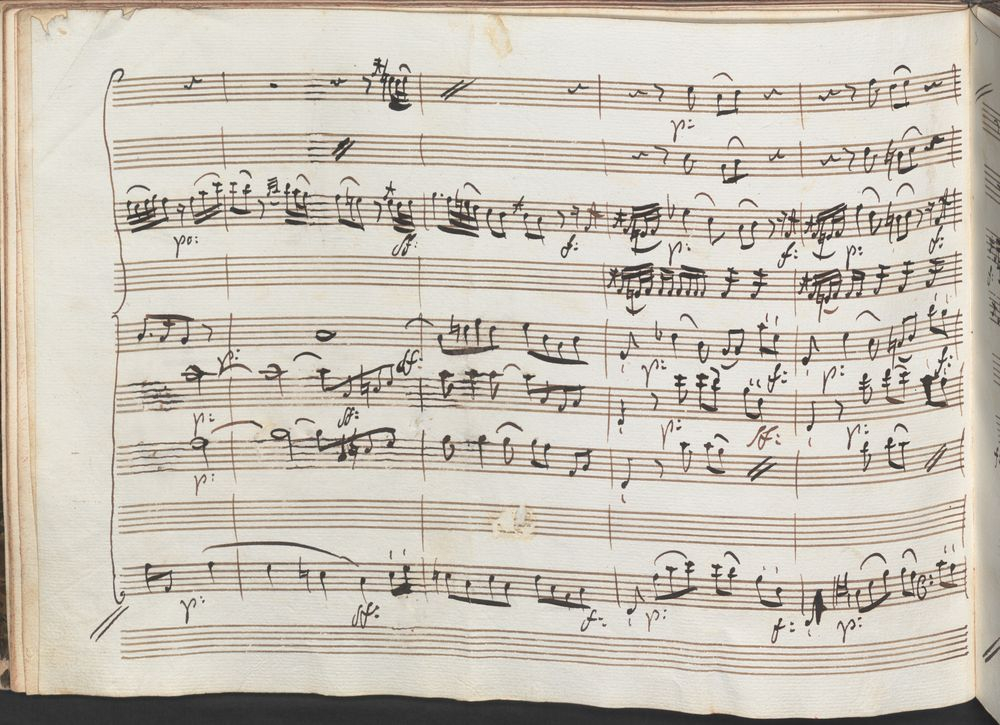 p:
po: ff: f: p: f: p: f:
p: ff: p: f: p: f:
p: ff: p: ff: p:
p:
p: ff: f: p: f: p: